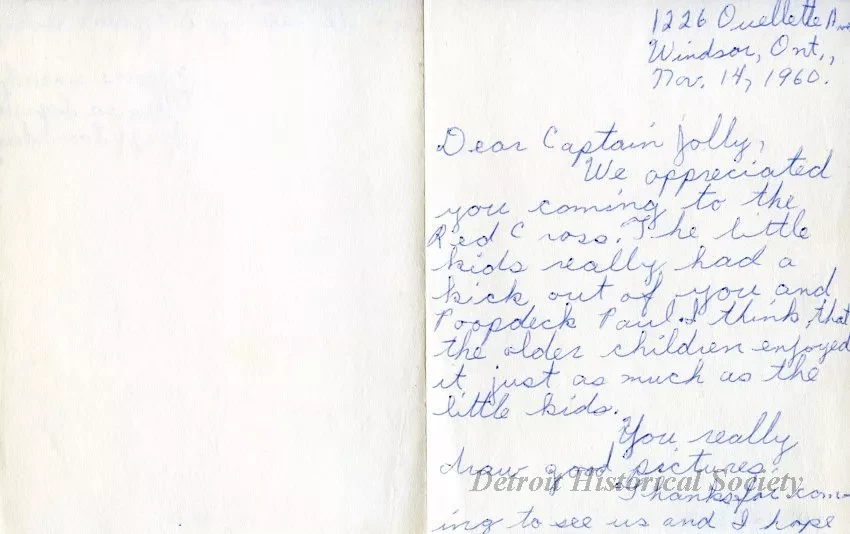 1226 Ouellette Ave
Windsor, Ont.,
Nov. 14, 1960.
Dear Captain Jolly,
We appreciated
you coming to the
Red Cross. The little
kids really had a
kick out of you and
Poopdeck Paul. I think that
the older children enjoyed
it just as much as the
little kids.
You really
draw good pictures.
Detroit Historical Society
Thanks for com-
ing to see us and I hope